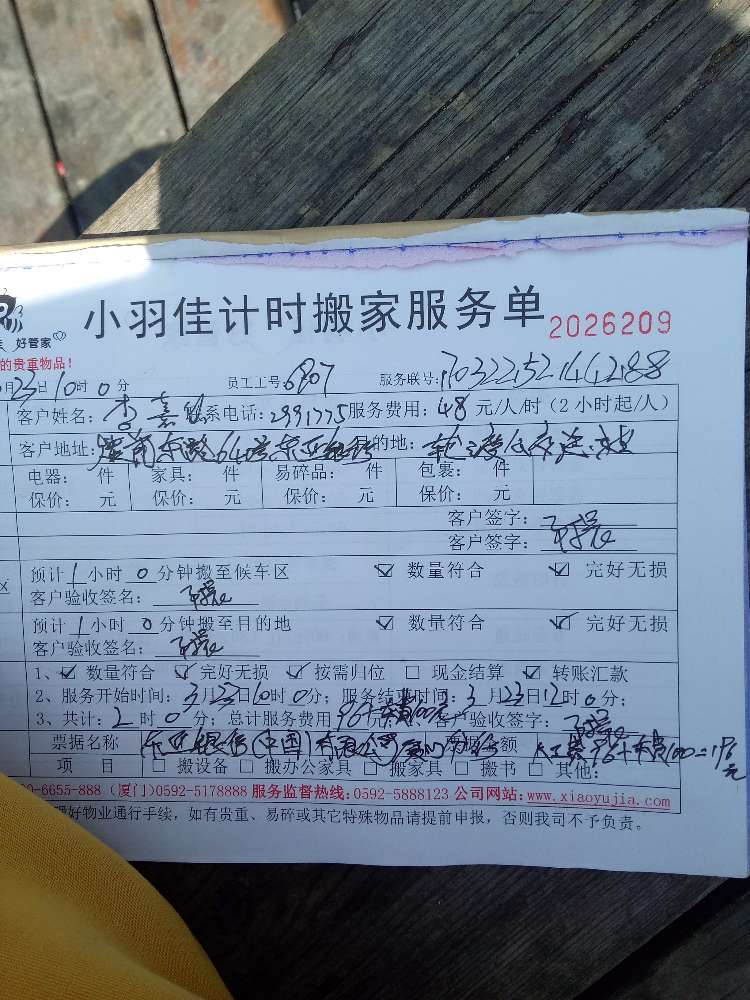 小羽佳计时搬家服务单 2026209
好管家
的贵重物品!
月23日10时0分 员工工号6907 服务联号:
客户姓名: 李嘉 系系电话:2991775服务费用:48元/人/时(2小时起/人)
客户地址: 路64号东亚银行 的地: 轮渡公交
电器: 件 家具: 件 易碎品: 件 包裹: 件
保价: 元 保价: 元 保价: 元 保价: 元
客户签字:
客户签字:
预计1小时0分钟搬至候车区 ☑ 数量符合 ☑ 完好无损
客户验收签名:
预计1小时0分钟搬至目的地 ☑ 数量符合 ☑ 完好无损
客户验收签名:
1、☑ 数量符合 ☑ 完好无损 ☑ 按需归位 □ 现金结算 ☑ 转账汇款
2、服务开始时间:3月23日10时0分; 服务结束时间:3月23日12时0分;
3、共计:2时0分; 总计服务费用96元车费100元 客户验收签字:
票据名称 东亚银行(中国)有限公司厦门分行 额 人工费96+车费100=196元
项 目 □ 搬设备 □ 搬办公家具 □ 搬家具 □ 搬书 □ 其他:
0-6655-888 (厦门)0592-5178888 服务监督热线:0592-5888123 公司网站:www.xiaoyujia.com
好物业通行手续,如有贵重、易碎或其它特殊物品请提前申报,否则我司不予负责。